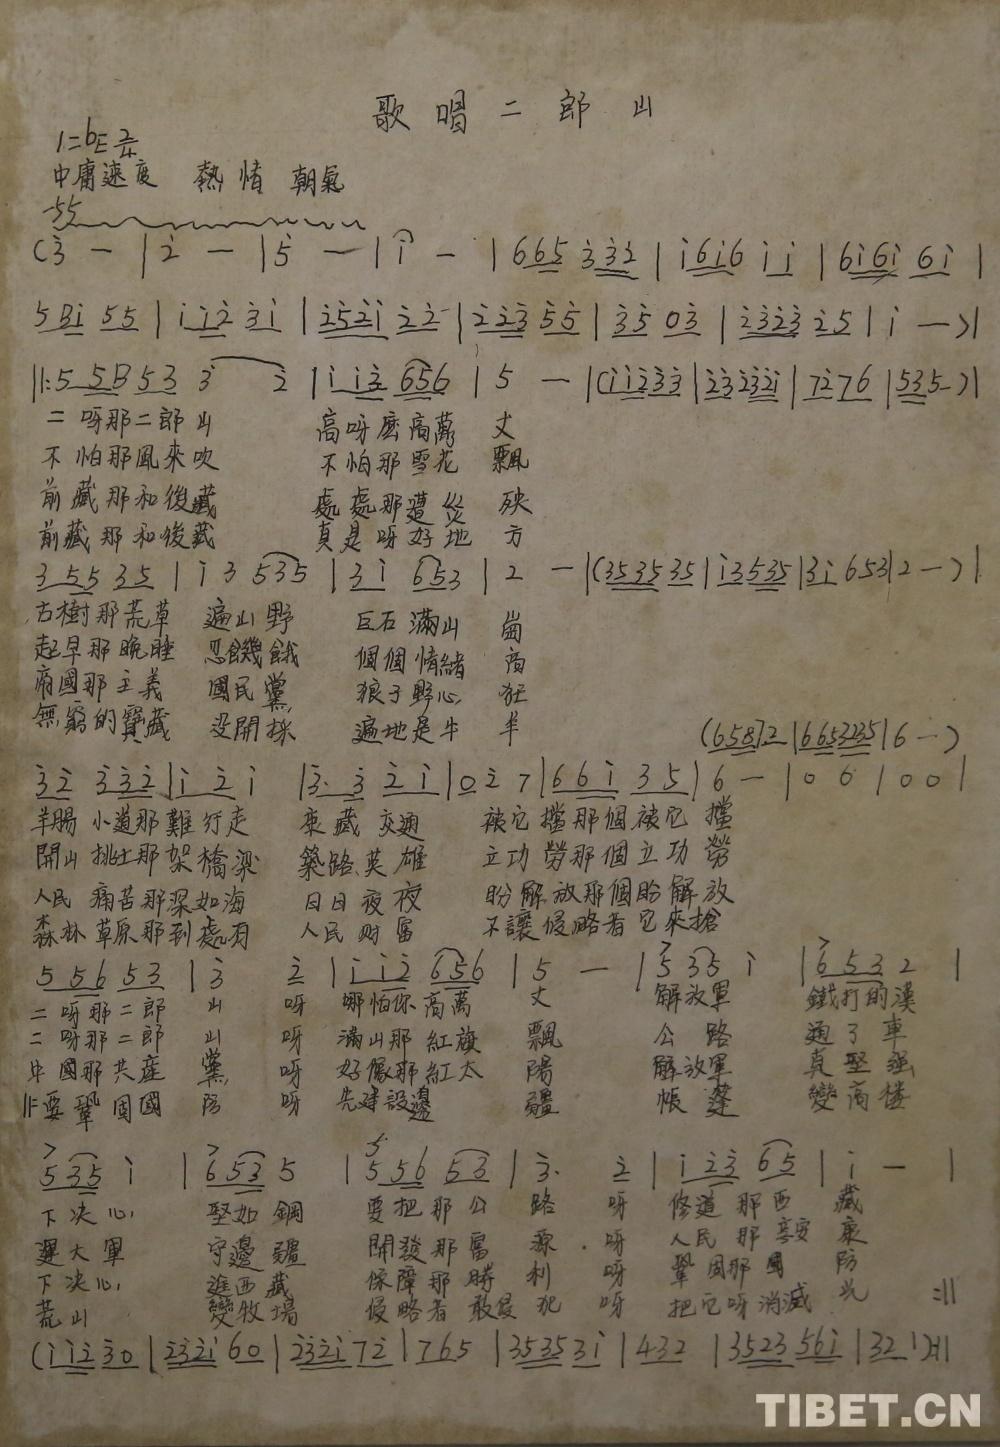 歌唱二郎山
1=bE 2/4
中庸速度 熱情 朝氣
(3 — | 2 — | 5 — | i — | 665 332 | i6i6 ii | 6i6i 6i |
55 | ii2 3i | 252i 22 | 223 55 | 35 03 | 2323 25 | i — ) |
53 3 2 | ii2 656 | 5 — | (ii233 | 23232i | 7276 | 535-) |
二呀那二郎山 高呀麽高萬 丈
不怕那風來吹 不怕那雪花 飄
前藏那和後藏 處處那遭災 殃
前藏那和後藏 真是呀好地 方
3 55 35 | i 3 535 | 3i 653 | 2 — | (35 35 35 | i3535 | 3i 653 | 2 —) |
古樹那荒草 遍山野 巨石滿山 崗
起早那晚睡 忍饑餓 個個情緒 高
帝國那主義 國民黨 狼子野心 狂
無窮的寶藏 没開採 遍地是牛 羊
| 6653235 | 6 —)
32 332 | i 2 i | 3. 3 2 i | 0 2 7 | 66i 35 | 6 — | 0 0 | 0 0 |
羊腸 小道那難行走 康藏 交通 被它擋那個被它 擋
開山 挑土那架橋梁 築路英雄 立功勞那個立功 勞
人民 痛苦那深如海 日日夜夜 盼解放那個盼解 放
森林 草原那到處有 人民财富 不讓侵略者它來搶
5 56 53 | 3 2 | ii2 656 | 5 — | 5 35 i | 6532 |
二呀那二郎 山 呀 哪怕你高萬 丈 解放軍 鐵打的漢
二呀那二郎 山 呀 滿山那紅旗 飄 公路 通了車
中國那共産 黨 呀 好像那紅太 陽 解放軍 真堅强
‖:要鞏固國 防 呀 先建設邊 疆 帳蓬 變高楼
535 i | 653 5 | 5 56 53 | 3. 2 | i23 65 | i — |
下决心 堅如鋼 要把那公 路 呀 修通那西 藏
運大軍 守邊疆 開發那富 源 呀 人民那享安 康
下决心 進西藏 保障那勝 利 呀 鞏固那國 防
荒山 變牧場 侵略者敢侵 犯 呀 把它呀消滅 光 :‖
(ii2 30 | 232i 60 | 232i 72 | 765 | 3535 3i | 432 | 3523 56i | 32 i)‖
TIBET.CN